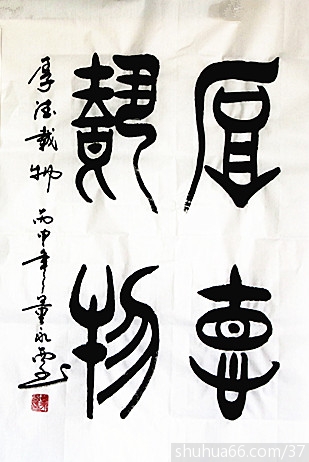 厚悳
載物
厚德載物 丙申年董永雲
shuhua66.com/37